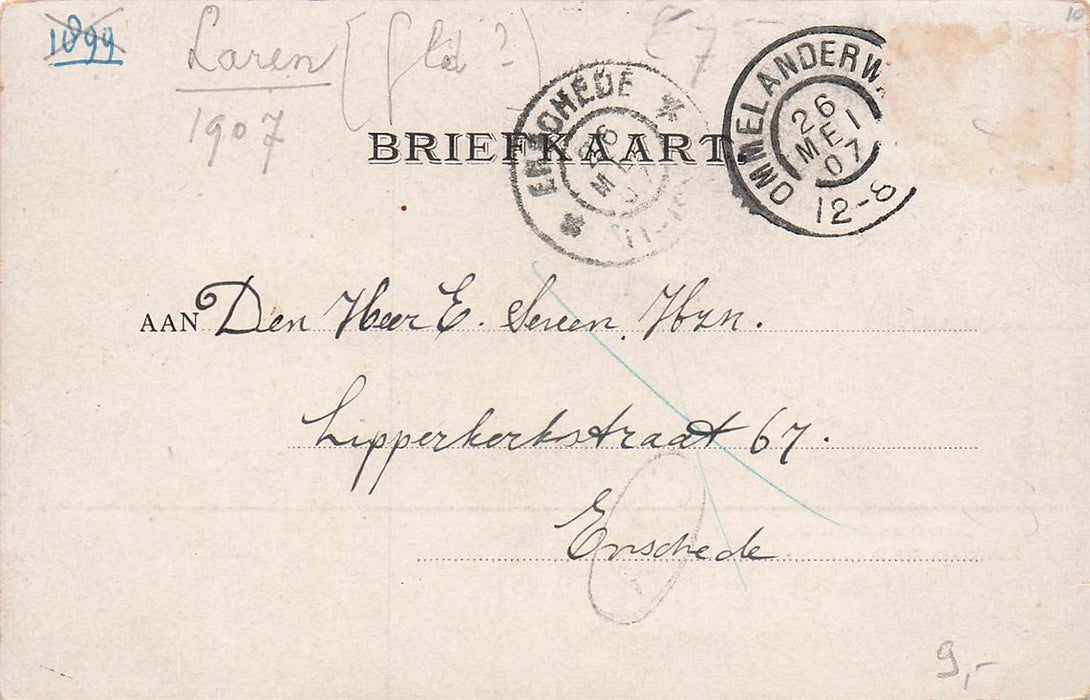 1899
Laren (Gld ?)
1907
E7-
10
BRIEFKAART
ENSCHEDE
26
MEI
07
OMMELANDERW
26
MEI
07
12-8
AAN Den Heer E. Sereen Hzn.
Lipperkerkstraat 67.
Enschede
9,-